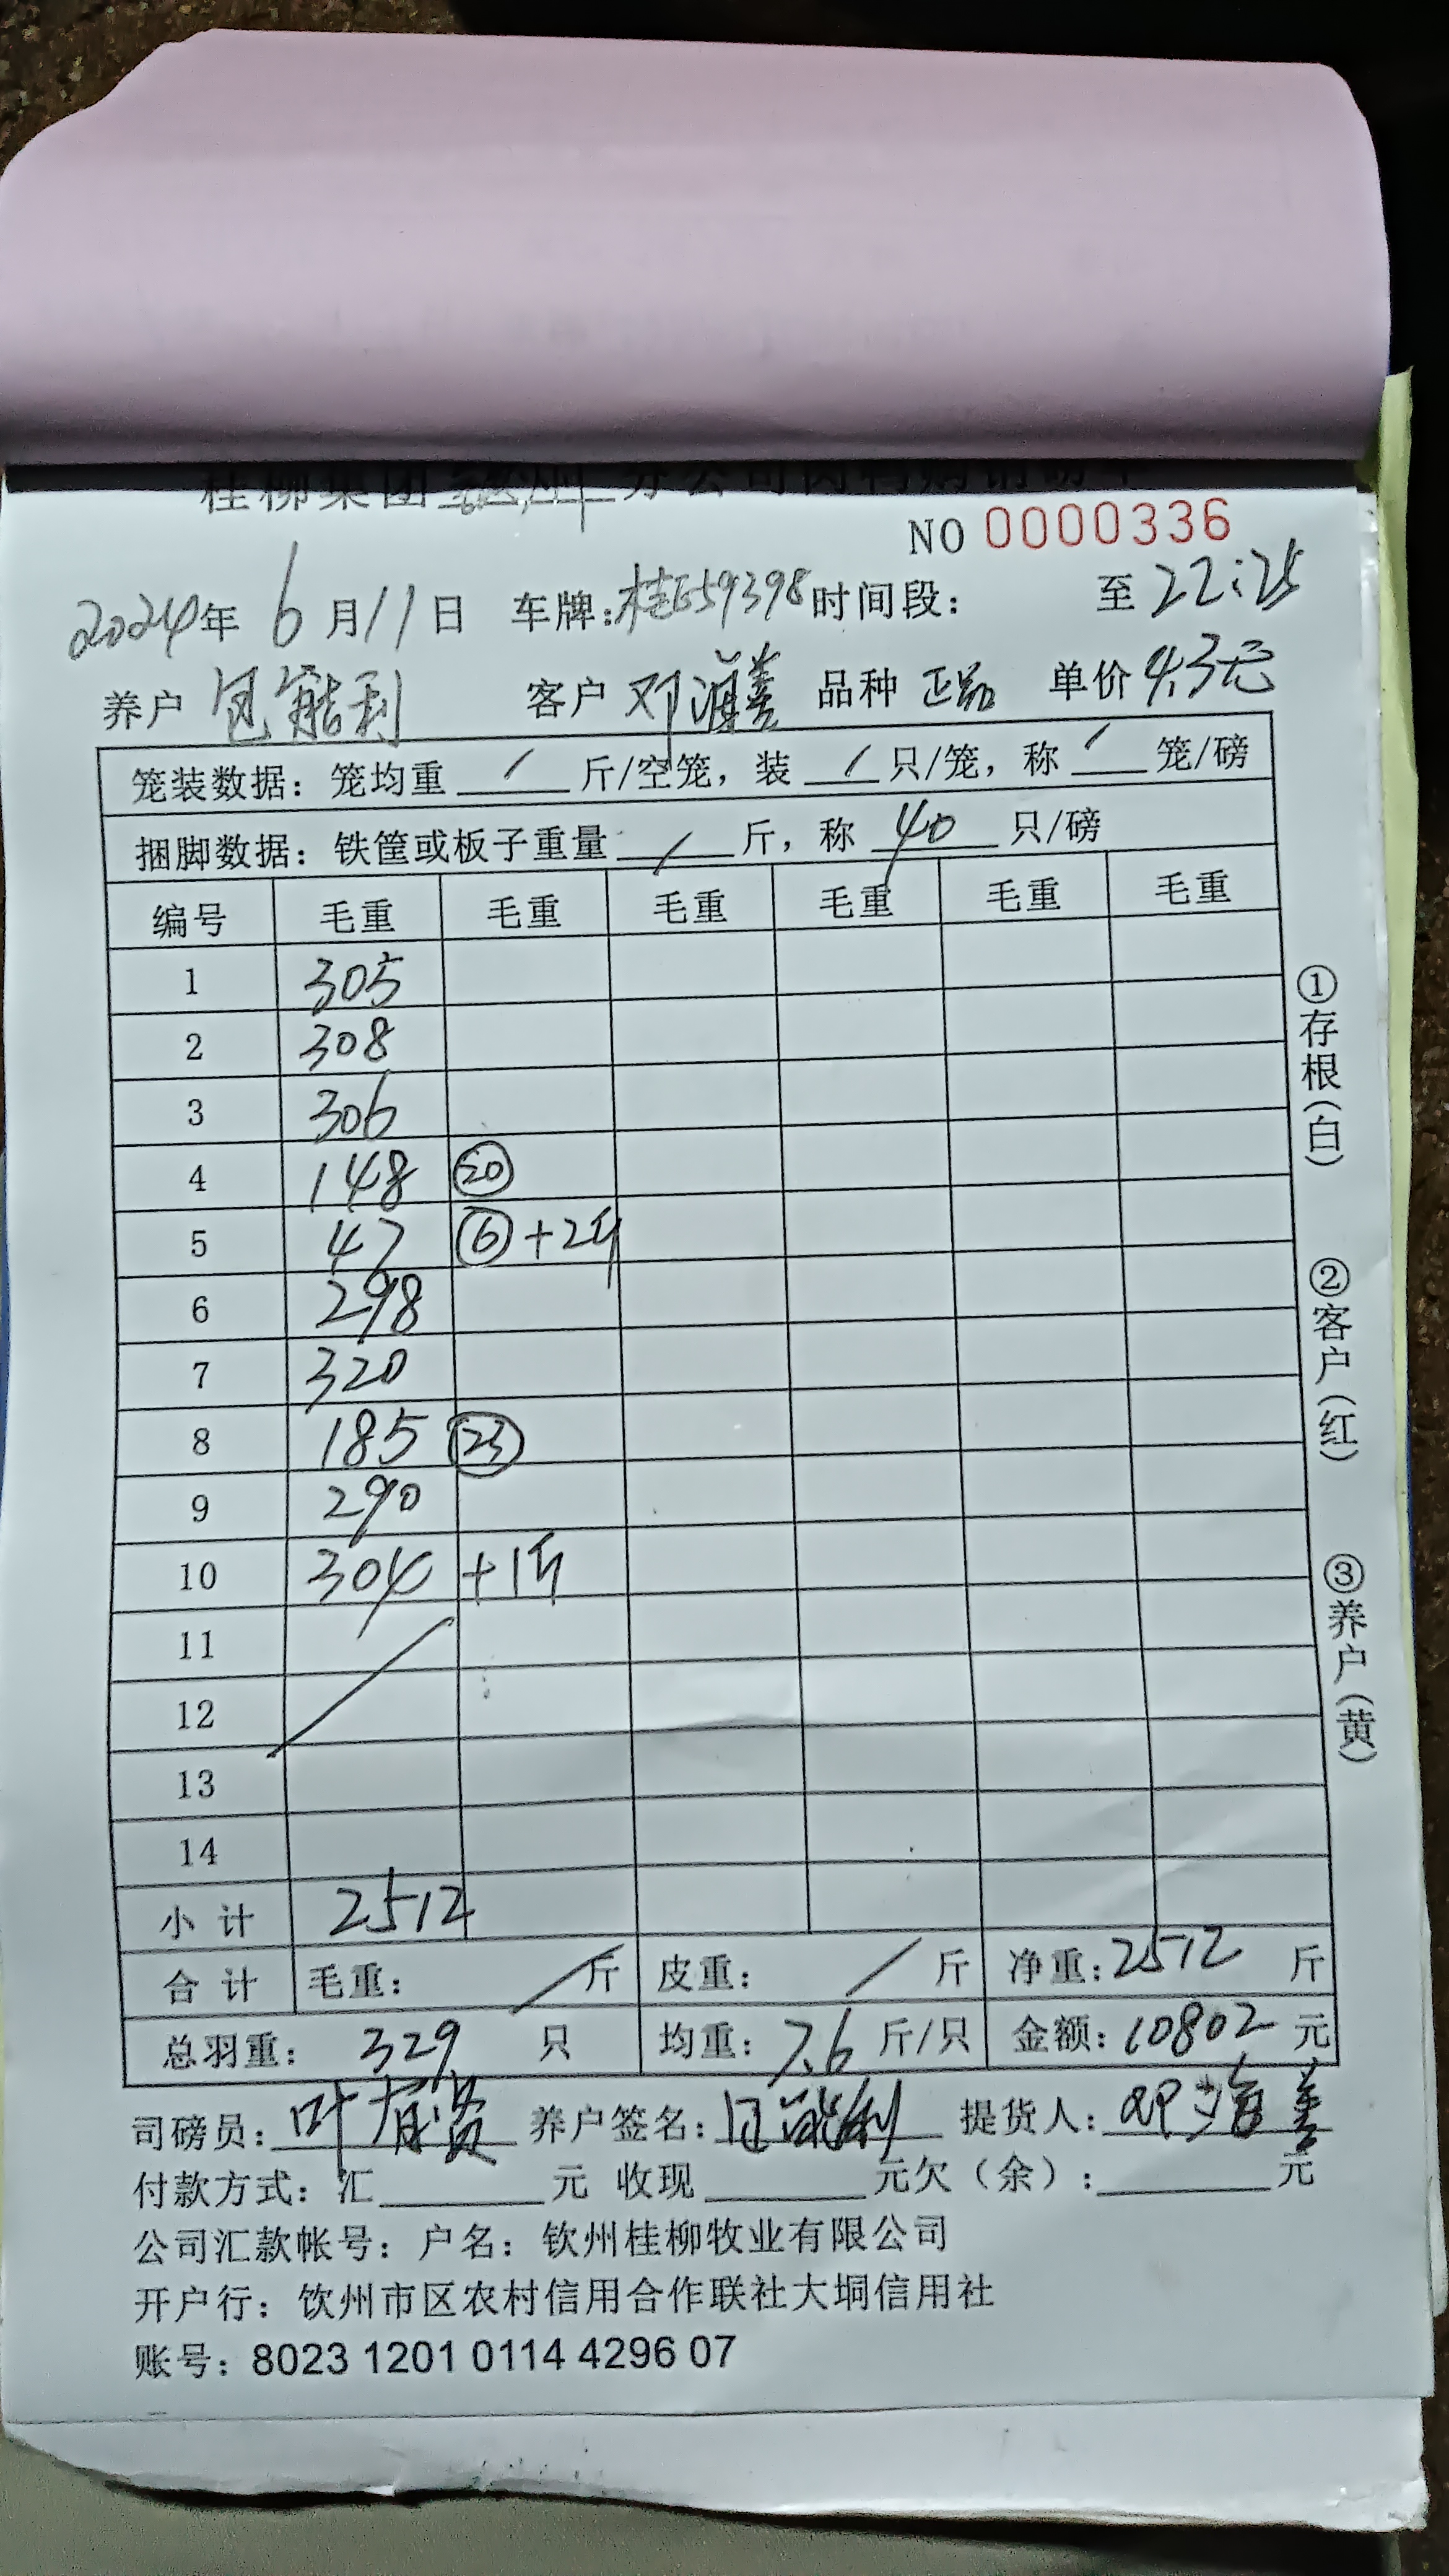 桂柳集团 分公司肉鸭购销磅单
NO 0000336
2024年 6月11日 车牌:桂E59398 时间段: 至 22:25
养户 包能利 客户 邓海善 品种 正品 单价 4.3元
笼装数据: 笼均重 / 斤/空笼, 装 / 只/笼, 称 / 笼/磅
捆脚数据: 铁筐或板子重量 / 斤, 称 40 只/磅
编号 毛重 毛重 毛重 毛重 毛重 毛重
1 305
2 308
3 306
4 148 ⑳
5 47 ⑥+2斤
6 298
7 320
8 185 ㉓
9 290
10 304 +1斤
11
12
13
14
小计 2512
合计 毛重: / 斤 皮重: / 斤 净重: 2512 斤
总羽重: 329 只 均重: 7.6 斤/只 金额: 10802 元
司磅员: 叶 养户签名: 包能利 提货人: 邓海善
付款方式: 汇 元 收现 元欠(余): 元
公司汇款帐号: 户名: 钦州桂柳牧业有限公司
开户行: 饮州市区农村信用合作联社大垌信用社
账号: 8023 1201 0114 4296 07
①存根(白)
②客户(红)
③养户(黄)